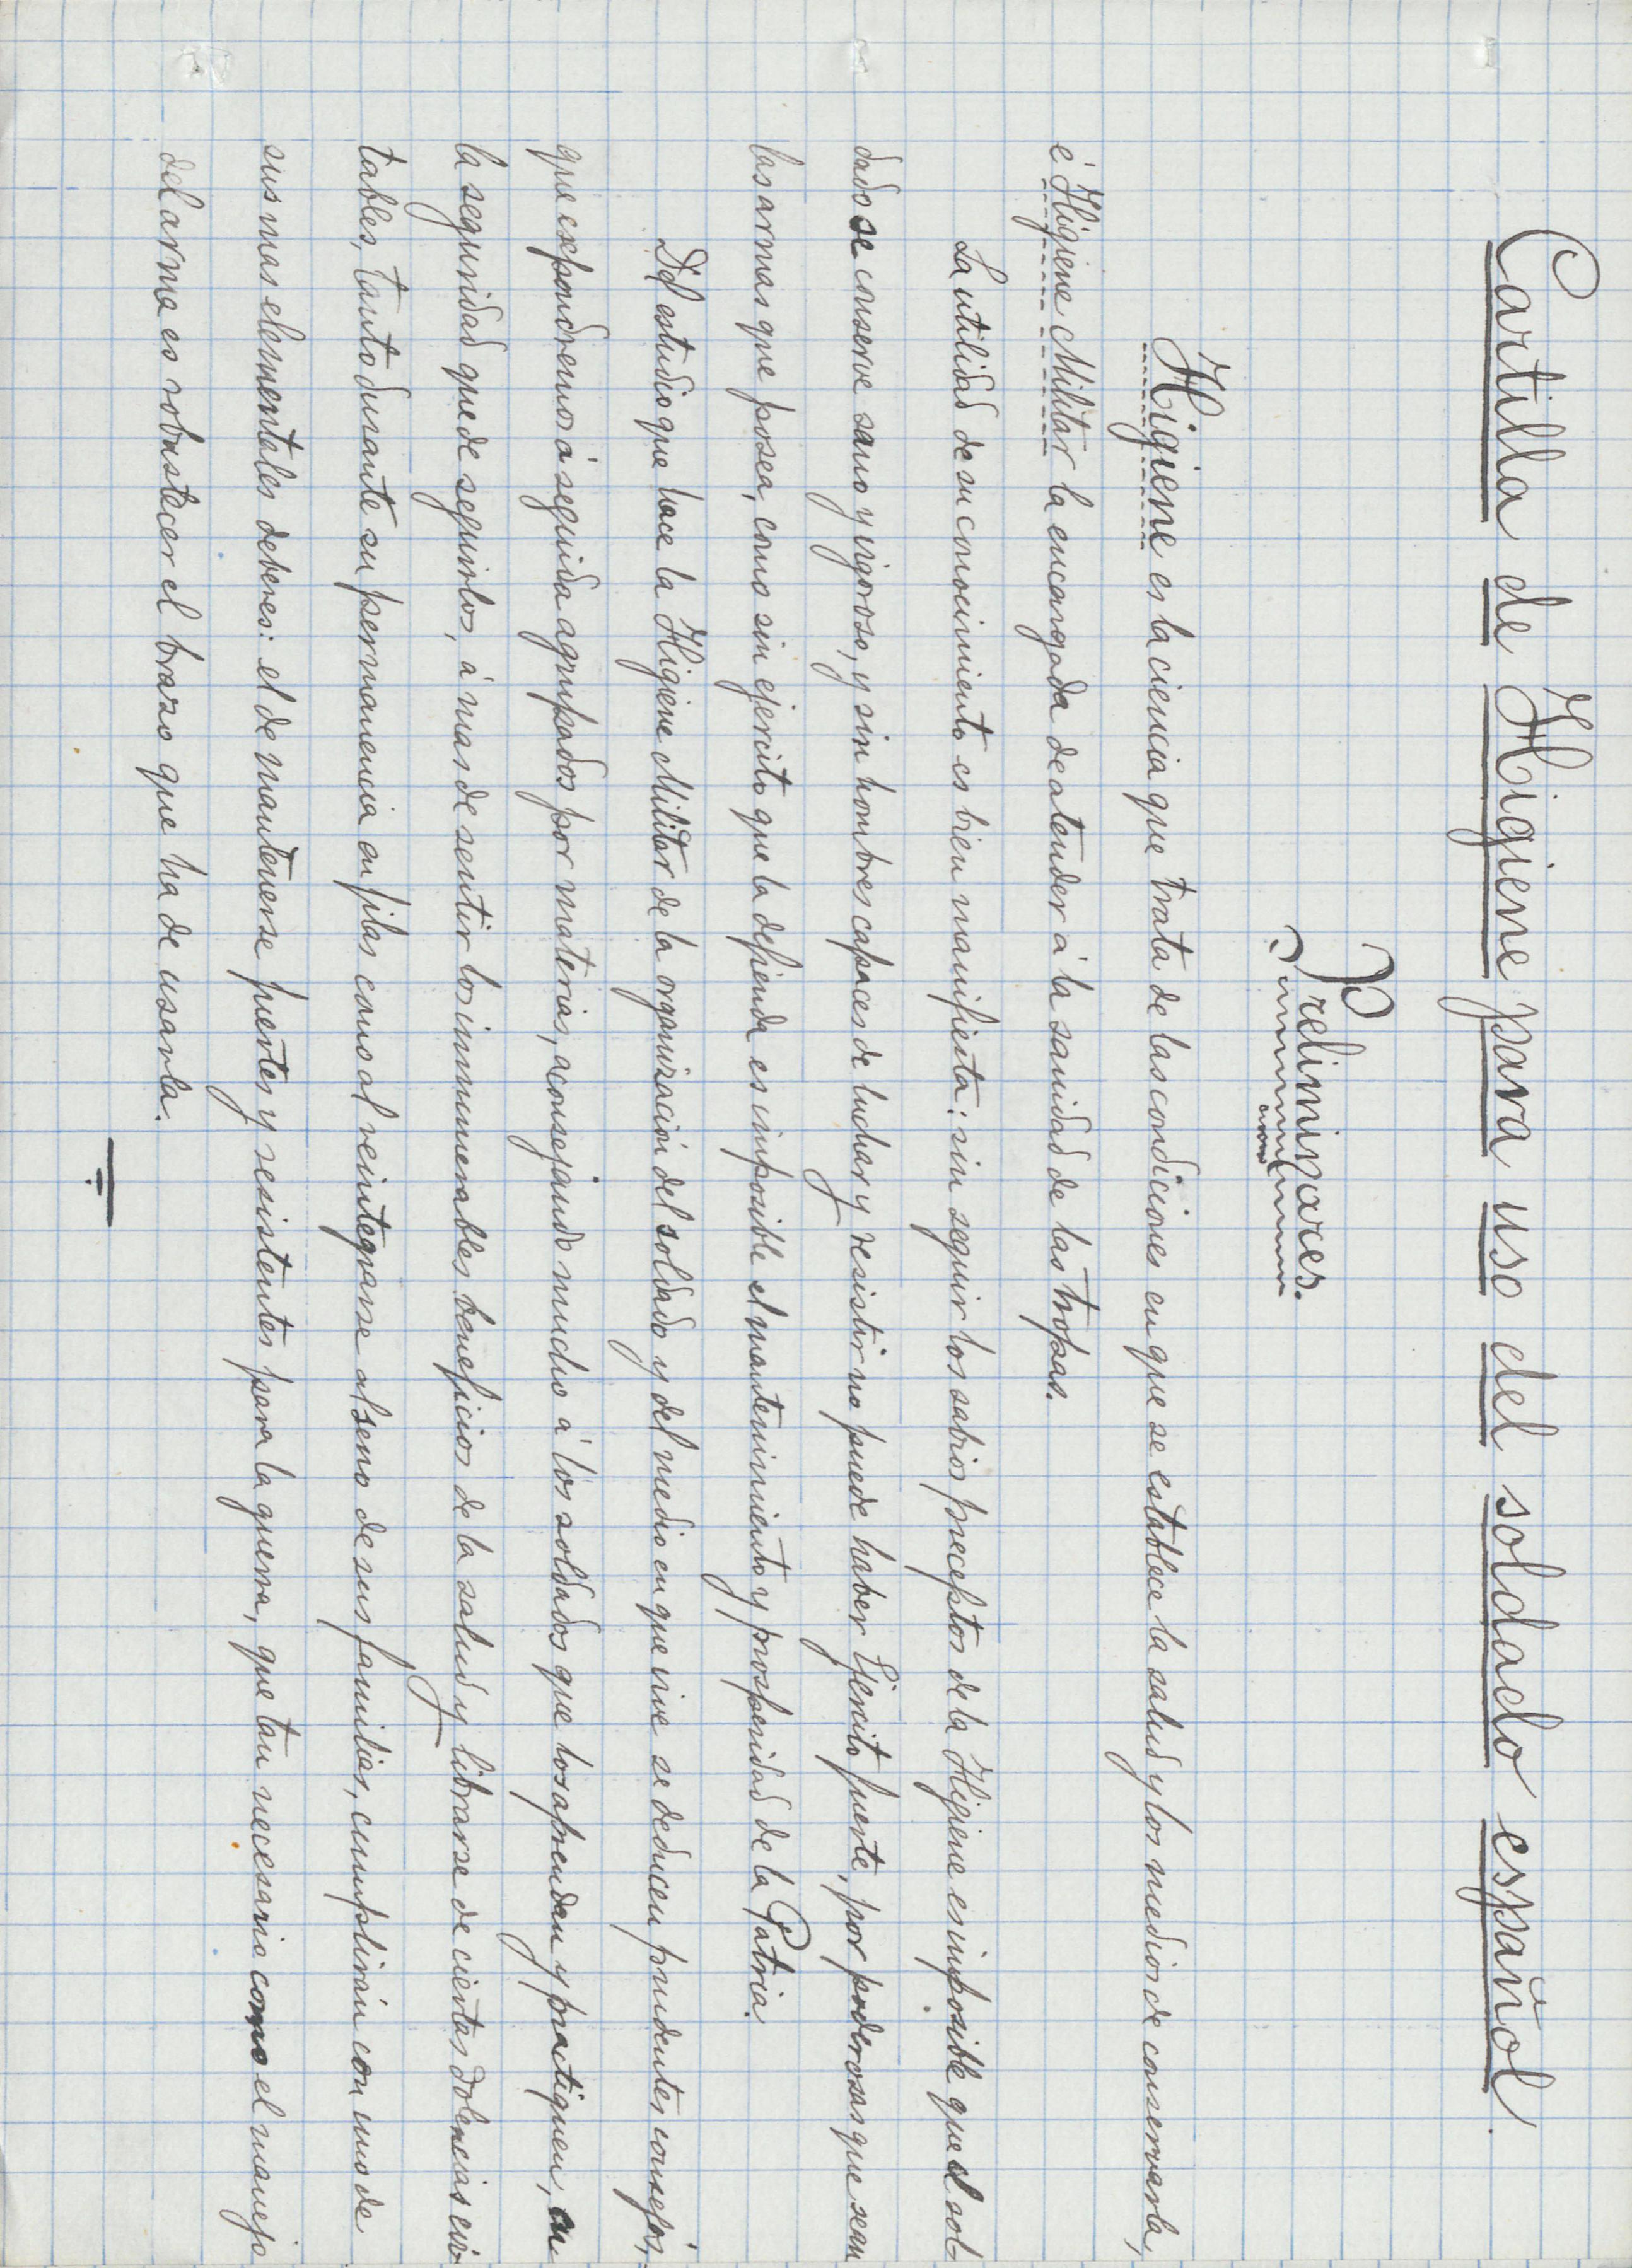 Cartilla de Higiene para uso del soldado español.
Preliminares.
Higiene es la ciencia que trata de las condiciones en que se establece la salud y los medios de conservarla,
é Higiene Militar la encargada de atender á la sanidad de las tropas.
La utilidad de su conocimiento es bien manifiesta: sin seguir los sabios preceptos de la Higiene es imposible que el sol-
dado se conserve sano y vigoroso, y sin hombres capaces de luchar y resistir no puede haber Ejército fuerte, por poderosas que sean
las armas que posea, como sin ejercito que la defienda es imposible el mantenimiento y prosperidad de la Patria.
Del estudio que hace la Higiene Militar de la organización del soldado y del medio en que vive se deducen prudentes consejos,
que expondremos á seguida agrupados por materias, aconsejando mucho á los soldados que los aprendan y practiquen, en
la seguridad que de seguirlos, á mas de sentir los innumerables beneficios de la salud y librarse de ciertas dolencias evi-
tables, tanto durante su permanencia en filas como al reintegrarse al seno de sus familias, cumplirán con uno de
sus mas elementales deberes: el de mantenerse fuertes y resistentes para la guerra, que tan necesario como el manejo
del arma es robustecer el brazo que ha de usarla.